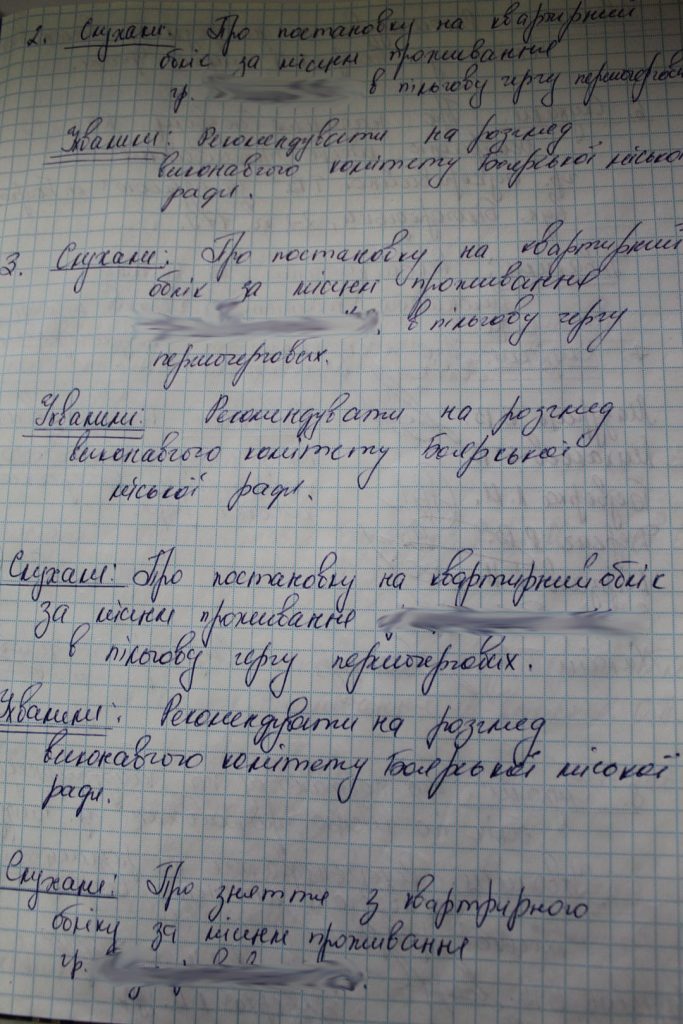 2. Слухали: Про постановку на квартирний
облік за місцем проживання
гр. в пільгову чергу першочергови
Ухвалили: Рекомендувати на розгляд
виконавчого комітету Боярської місько
ради.
3. Слухали: Про постановку на квартирний
облік за місцем проживання
в пільгову чергу
першочергових.
Ухвалили: Рекомендувати на розгляд
виконавчого комітету Боярської
міської ради.
Слухали: Про постановку на квартирний облік
за місцем проживання
в пільгову чергу першочергових.
Ухвалили: Рекомендувати на розгляд
виконавчого комітету Боярської міської
ради.
Слухали: Про зняття з квартирного
обліку за місцем проживання
гр.